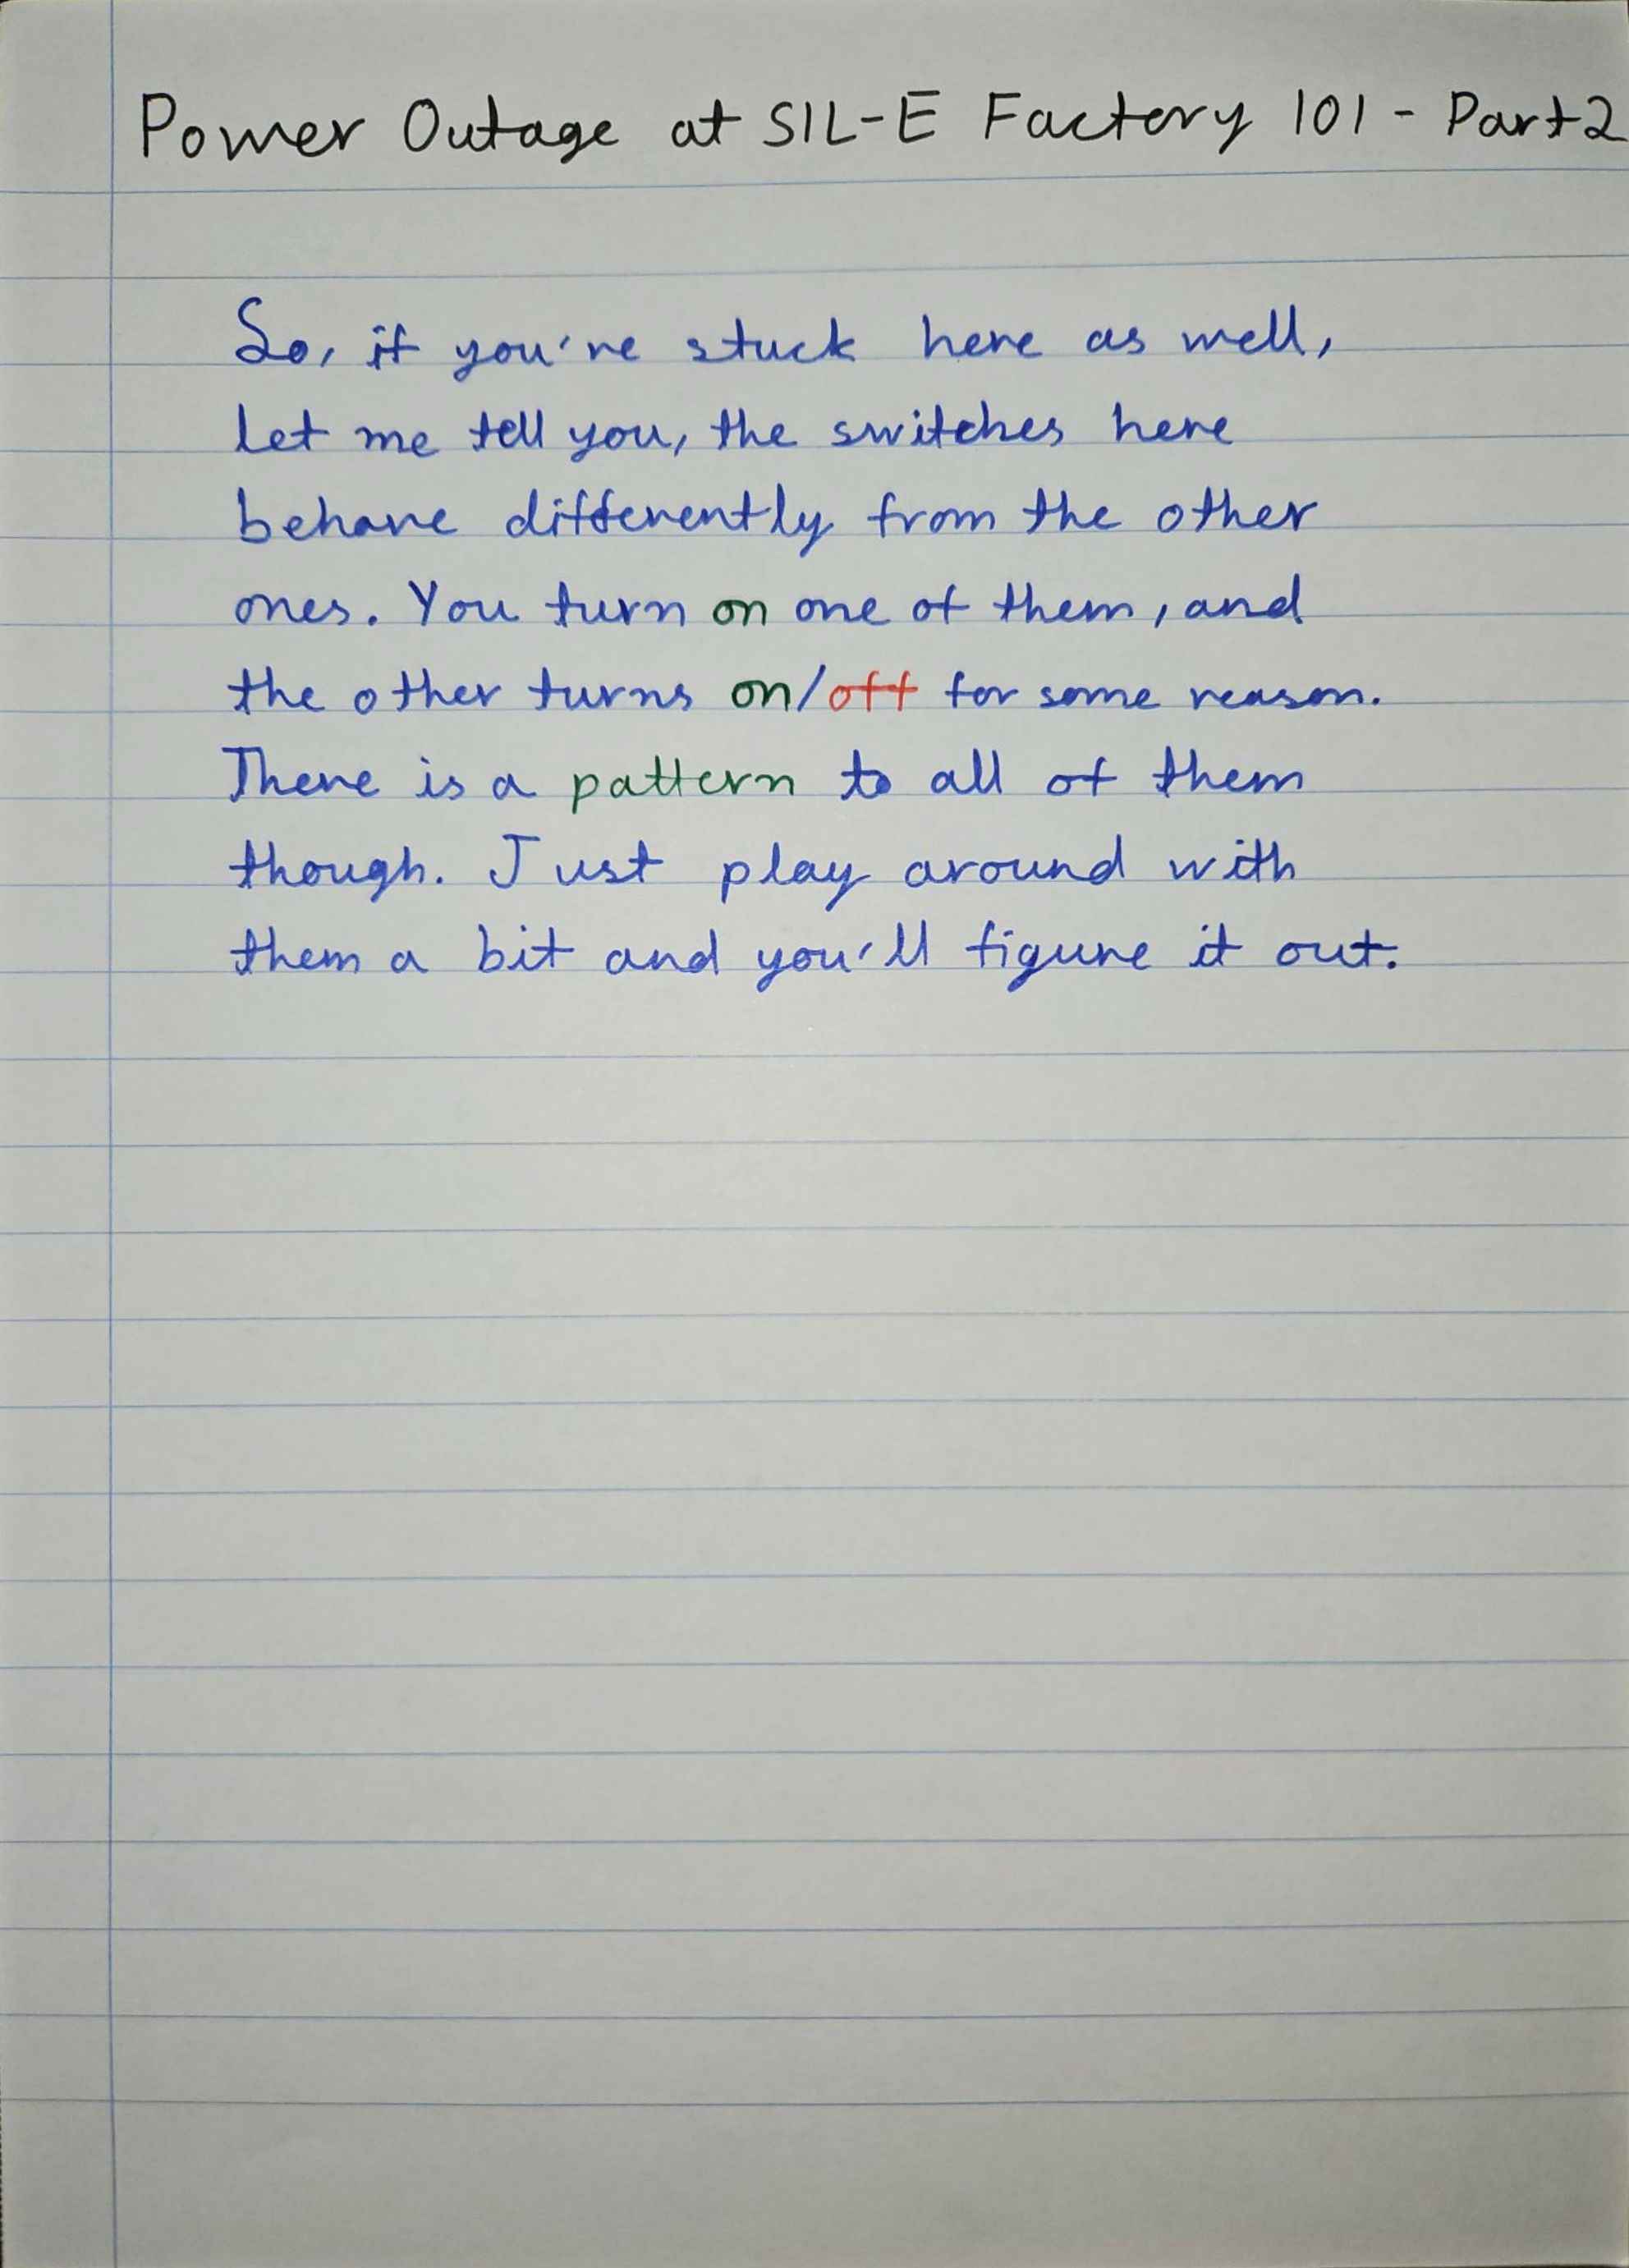 Power Outage at SIL-E Factory 101 - Part 2
So, if you're stuck here as well,
let me tell you, the switches here
behave differently from the other
ones. You turn on one of them, and
the other turns on/off for some reason.
There is a pattern to all of them
though. Just play around with
them a bit and you'll figure it out.